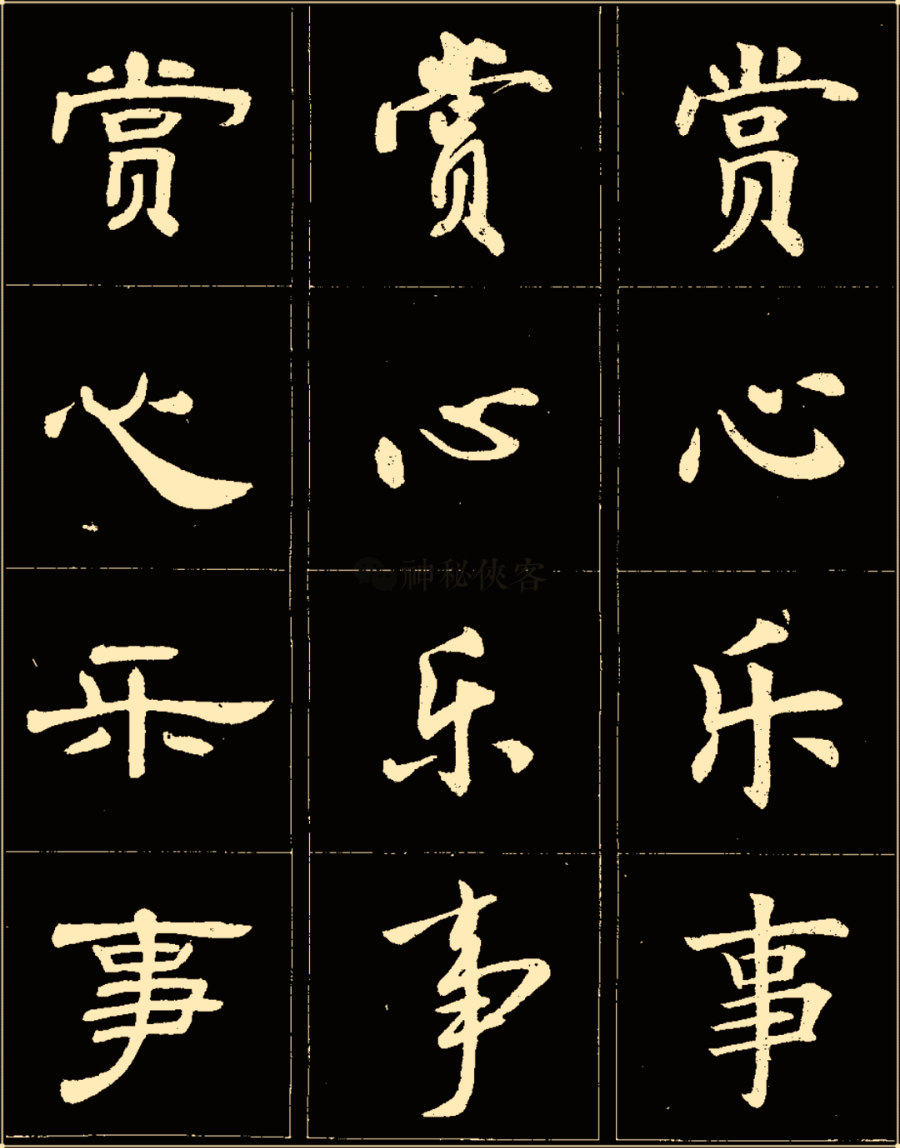 赏 赏 赏
心 心 心
乐 乐 乐
神秘侠客
事 事 事